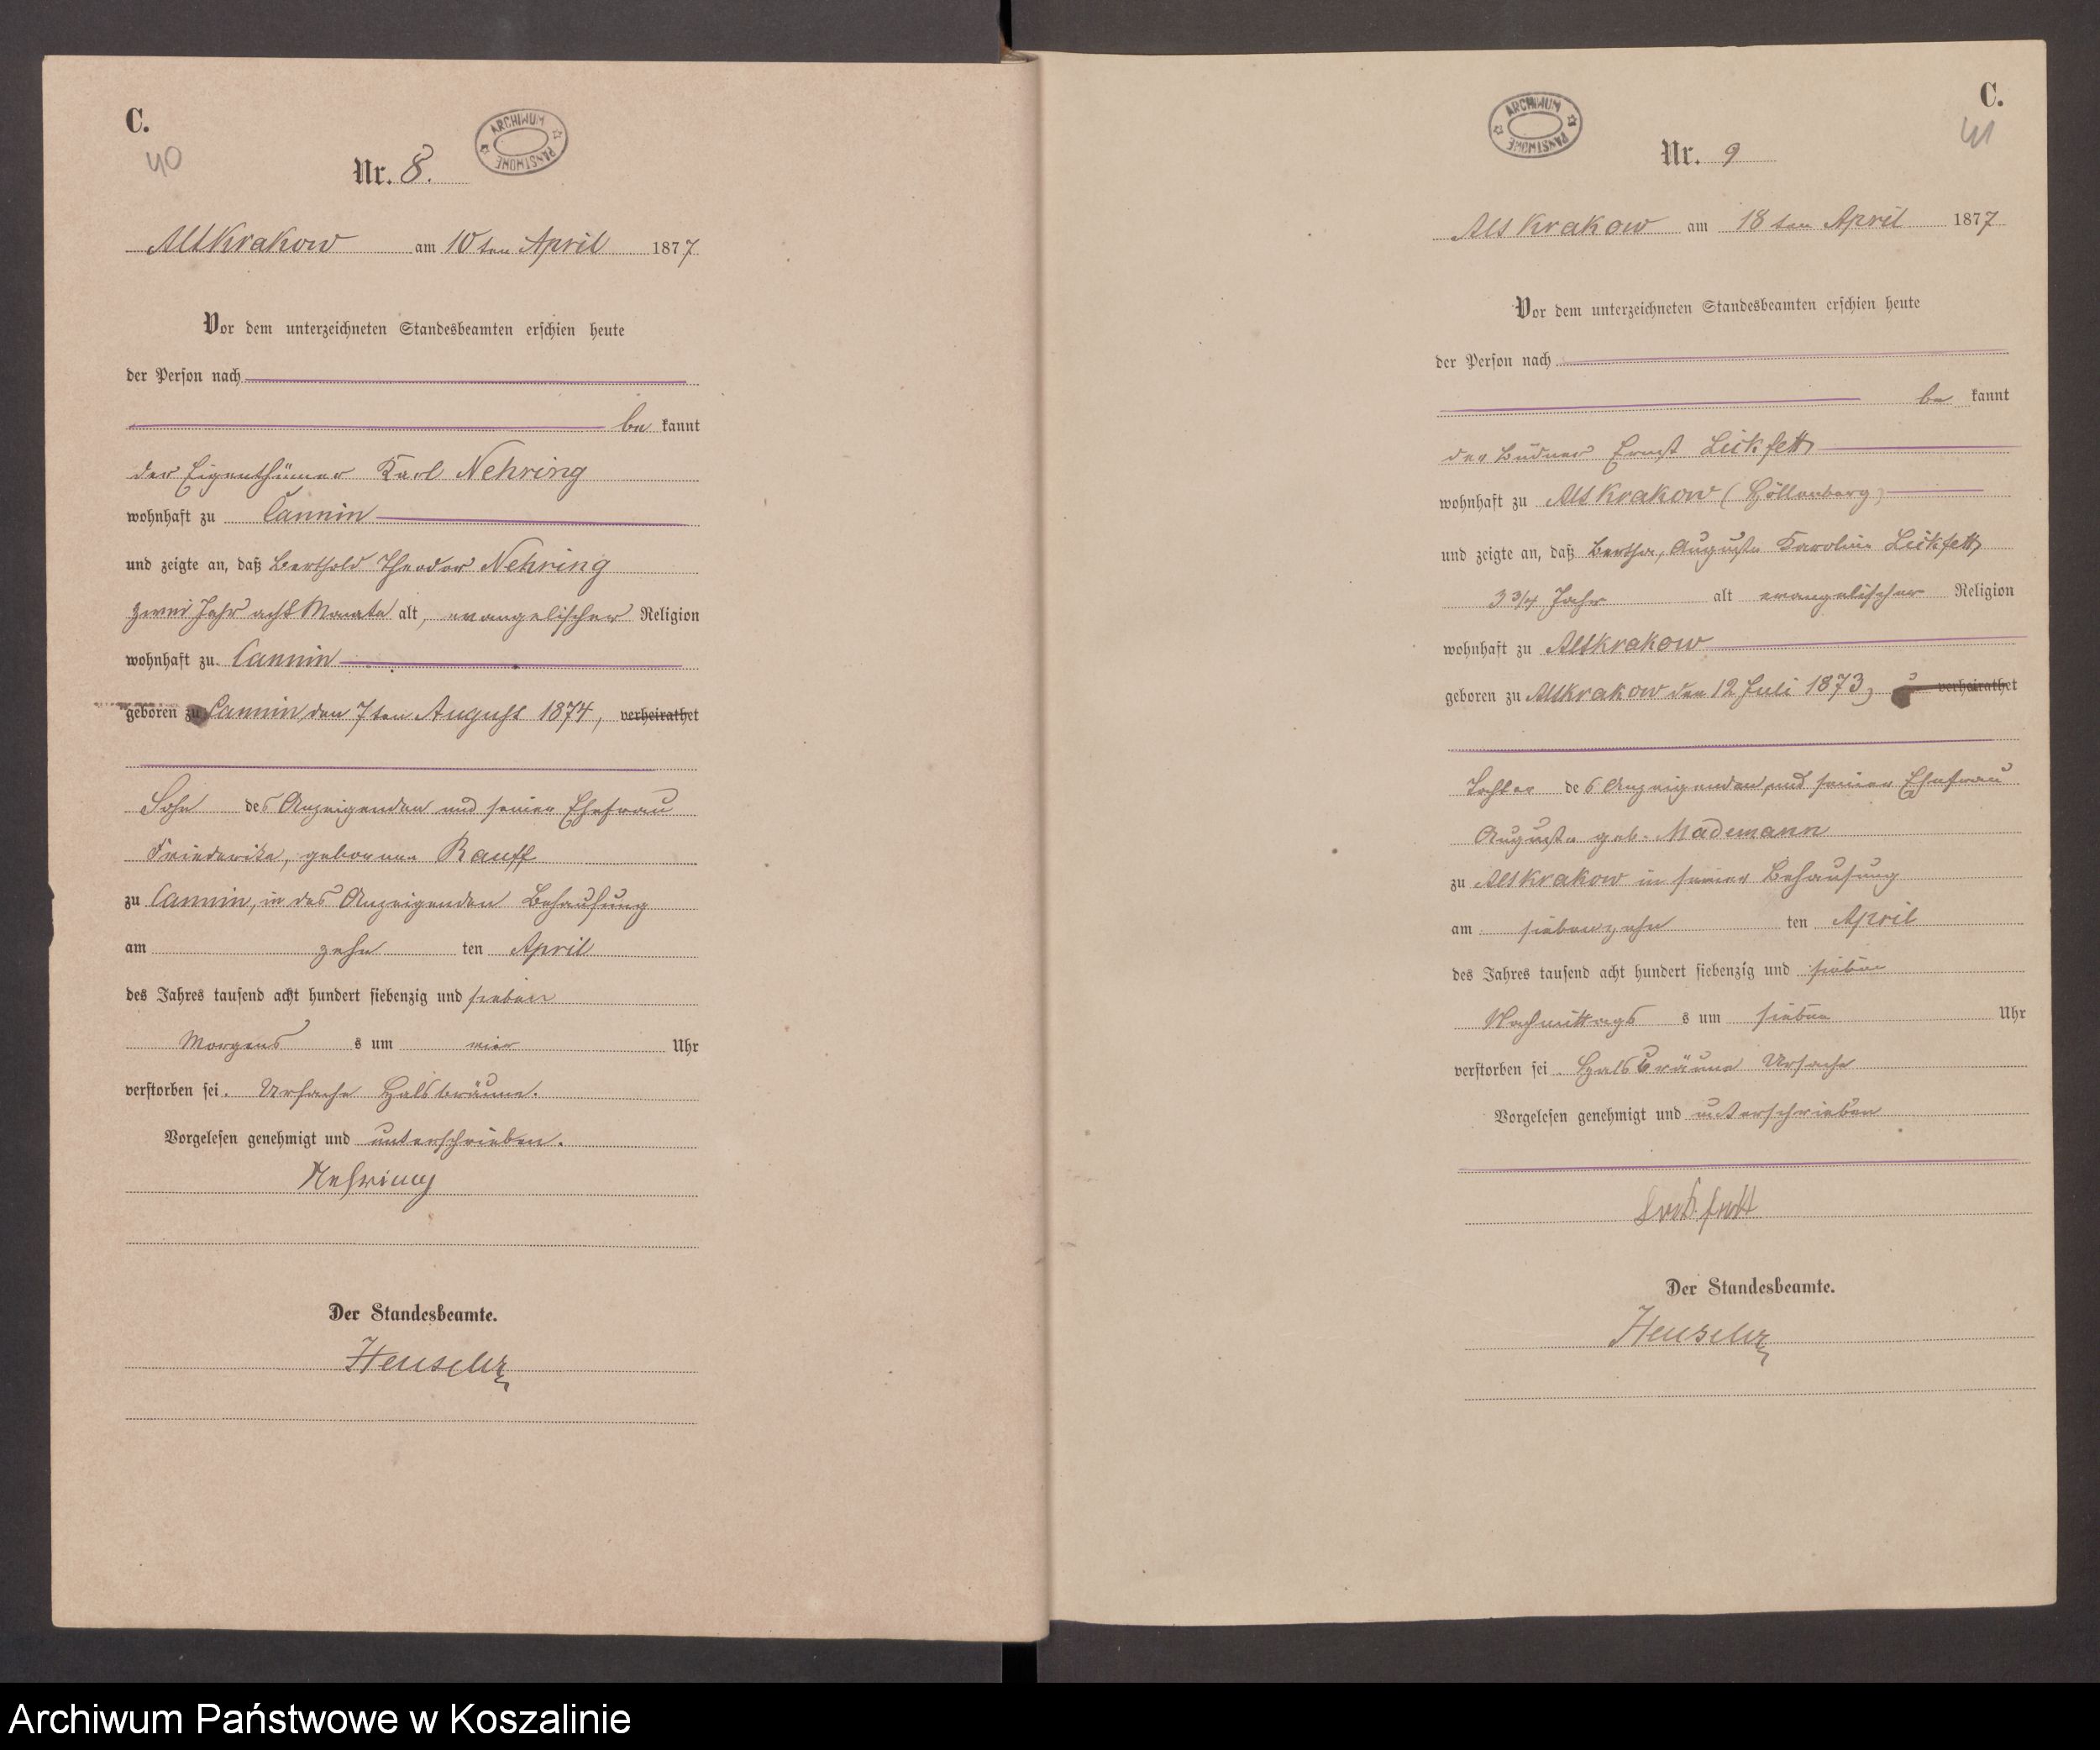 C.
40
ARCHIWUM PAŃSTWOWE
Nr. 8.
Altkrakow am 10ten April 1877
Vor dem unterzeichneten Standesbeamten erschien heute
der Person nach
be kannt
der Eigenthümer Karl Nehring
wohnhaft zu Cannin
und zeigte an, daß Berthold Theodor Nehring
zwei Jahr acht Monate alt, evangelischer Religion
wohnhaft zu Cannin
geboren zu Cannin den 7ten August 1874, verheirathet
Sohn des Anzeigenden und seiner Ehefrau
Friederike, geborene Rauff
zu Cannin, in des Anzeigenden Behausung
am zehn ten April
des Jahres tausend acht hundert siebenzig und sieben
Morgens s um vier Uhr
verstorben sei. Ursache Halsbräune.
Vorgelesen genehmigt und unterschrieben.
Nehring
Der Standesbeamte.
C.
41
ARCHIWUM PAŃSTWOWE
Nr. 9
Altkrakow am 18ten April 1877
Vor dem unterzeichneten Standesbeamten erschien heute
der Person nach
be kannt
der Büdner Ernst Leikfett
wohnhaft zu Altkrakow (Höllenberg)
und zeigte an, daß Bertha, Auguste Karoline Leikfett
3 3/4 Jahr alt evangelischer Religion
wohnhaft zu Altkrakow
geboren zu Altkrakow den 12 Juli 1873, verheirathet
Tochter des Anzeigenden und seiner Ehefrau
Auguste geb. Mademann
zu Altkrakow in seiner Behausung
am siebenzehn ten April
des Jahres tausend acht hundert siebenzig und sieben
Nachmittags s um sieben Uhr
verstorben sei. Halsbräune Ursache
Vorgelesen genehmigt und unterschrieben
Der Standesbeamte.
Archiwum Państwowe w Koszalinie